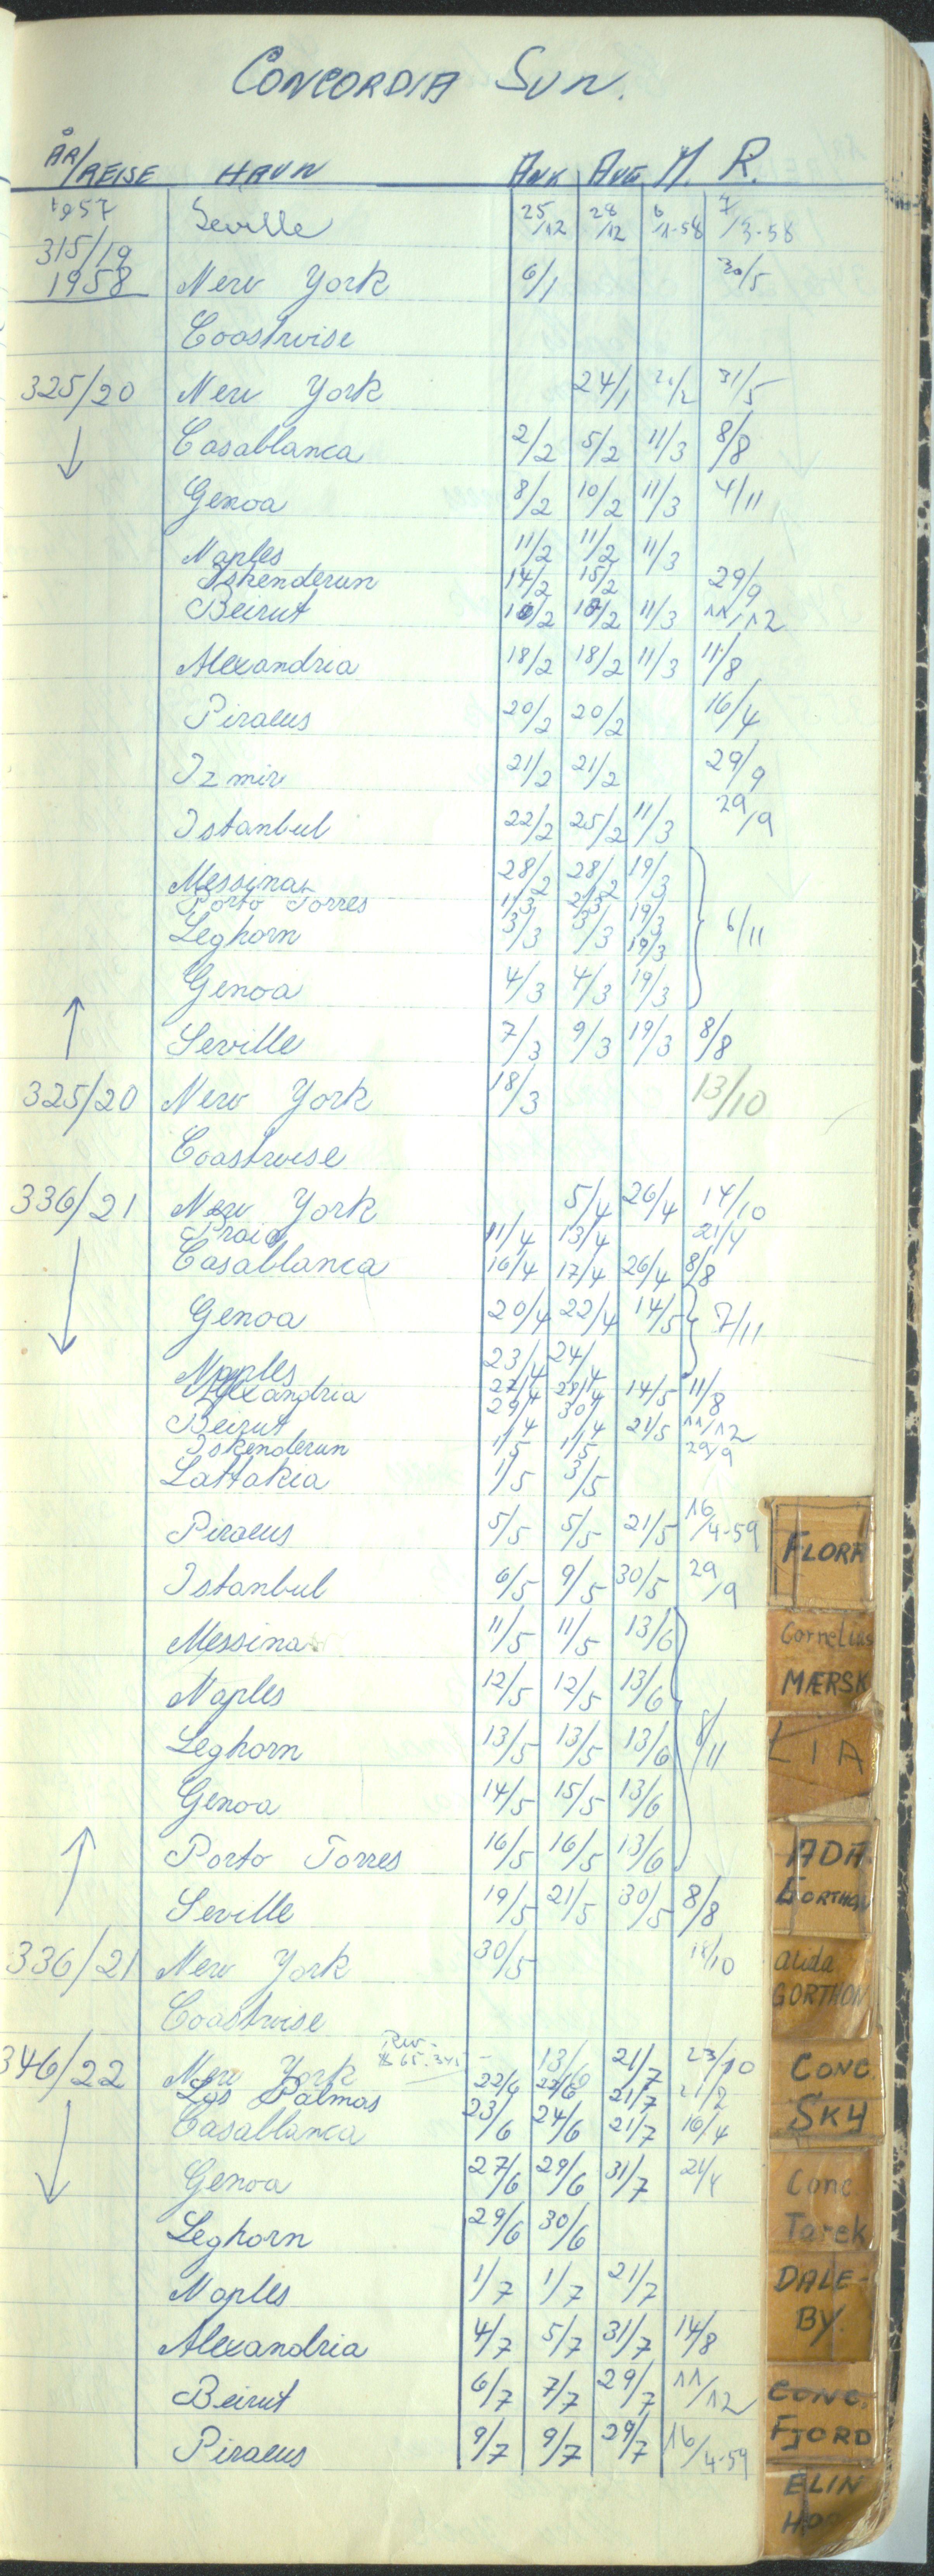 CONCORDIA SUN.
ÅR/REISE HAVN ANK AVG. M. R.
1957 Seville 25/12 28/12 6/1-58 7/3-58
315/19
1958 New York 6/1 30/5
Coastwise
325/20 New York 24/1 31/5
Casablanca 2/2 5/2 11/3 8/8
Genoa 8/2 10/2 11/3 4/11
Naples 11/2 11/2 11/3
Iskenderun 14/2 15/2 29/9
Beirut 11/3 11/12
Alexandria 18/2 18/2 11/3 11/8
Piraeus 20/2 20/2 16/4
Izmir 21/2 21/2 29/9
Istanbul 22/2 25/2 11/3 29/9
Messina 28/2 28/2 19/3
Porto Torres 1/3 2/3 19/3
Leghorn 3/3 3/3 19/3 6/11
Genoa 4/3 4/3 19/3
Seville 7/3 9/3 19/3 8/8
325/20 New York 18/3 13/10
Coastwise
336/21 New York 5/4 26/4 14/10
11/4 13/4 21/4
Casablanca 16/4 17/4 26/4 8/8
Genoa 20/4 22/4 14/5 7/11
Naples 23/4 24/4
Alexandria 27/4 28/4 14/5 11/8
Beirut 29/4 30/4 21/5 11/12
Iskenderun 1/5 1/5 29/9
Lattakia 1/5 3/5
Piraeus 5/5 5/5 21/5 16/4-59
Istanbul 6/5 9/5 30/5 29/9
Messina 11/5 11/5 13/6
Naples 12/5 12/5 13/6
Leghorn 13/5 13/5 13/6 8/11
Genoa 14/5 15/5 13/6
Porto Torres 16/5 16/5 13/6
Seville 19/5 21/5 30/5 8/8
336/21 New York 30/5
Coastwise
346/22 New York 13/6 21/7 23/10
Las Palmas 22/6 22/6 21/7
Casablanca 23/6 24/6 21/7 16/4
Genoa 27/6 29/6 31/7 21/4
Leghorn 29/6 30/6
Naples 1/7 1/7 21/7
Alexandria 4/7 5/7 31/7 14/8
Beirut 6/7 7/7 29/7 11/12
Piraeus 9/7 9/7 29/7 16/4-59
FLORA
Cornelius
MÆRSK
LIA
ADA
GORTHON
Alida
GORTHON
CONC.
SKY
Conc
Tarek
DALE-
BY.
CONC.
FJORD
ELIN